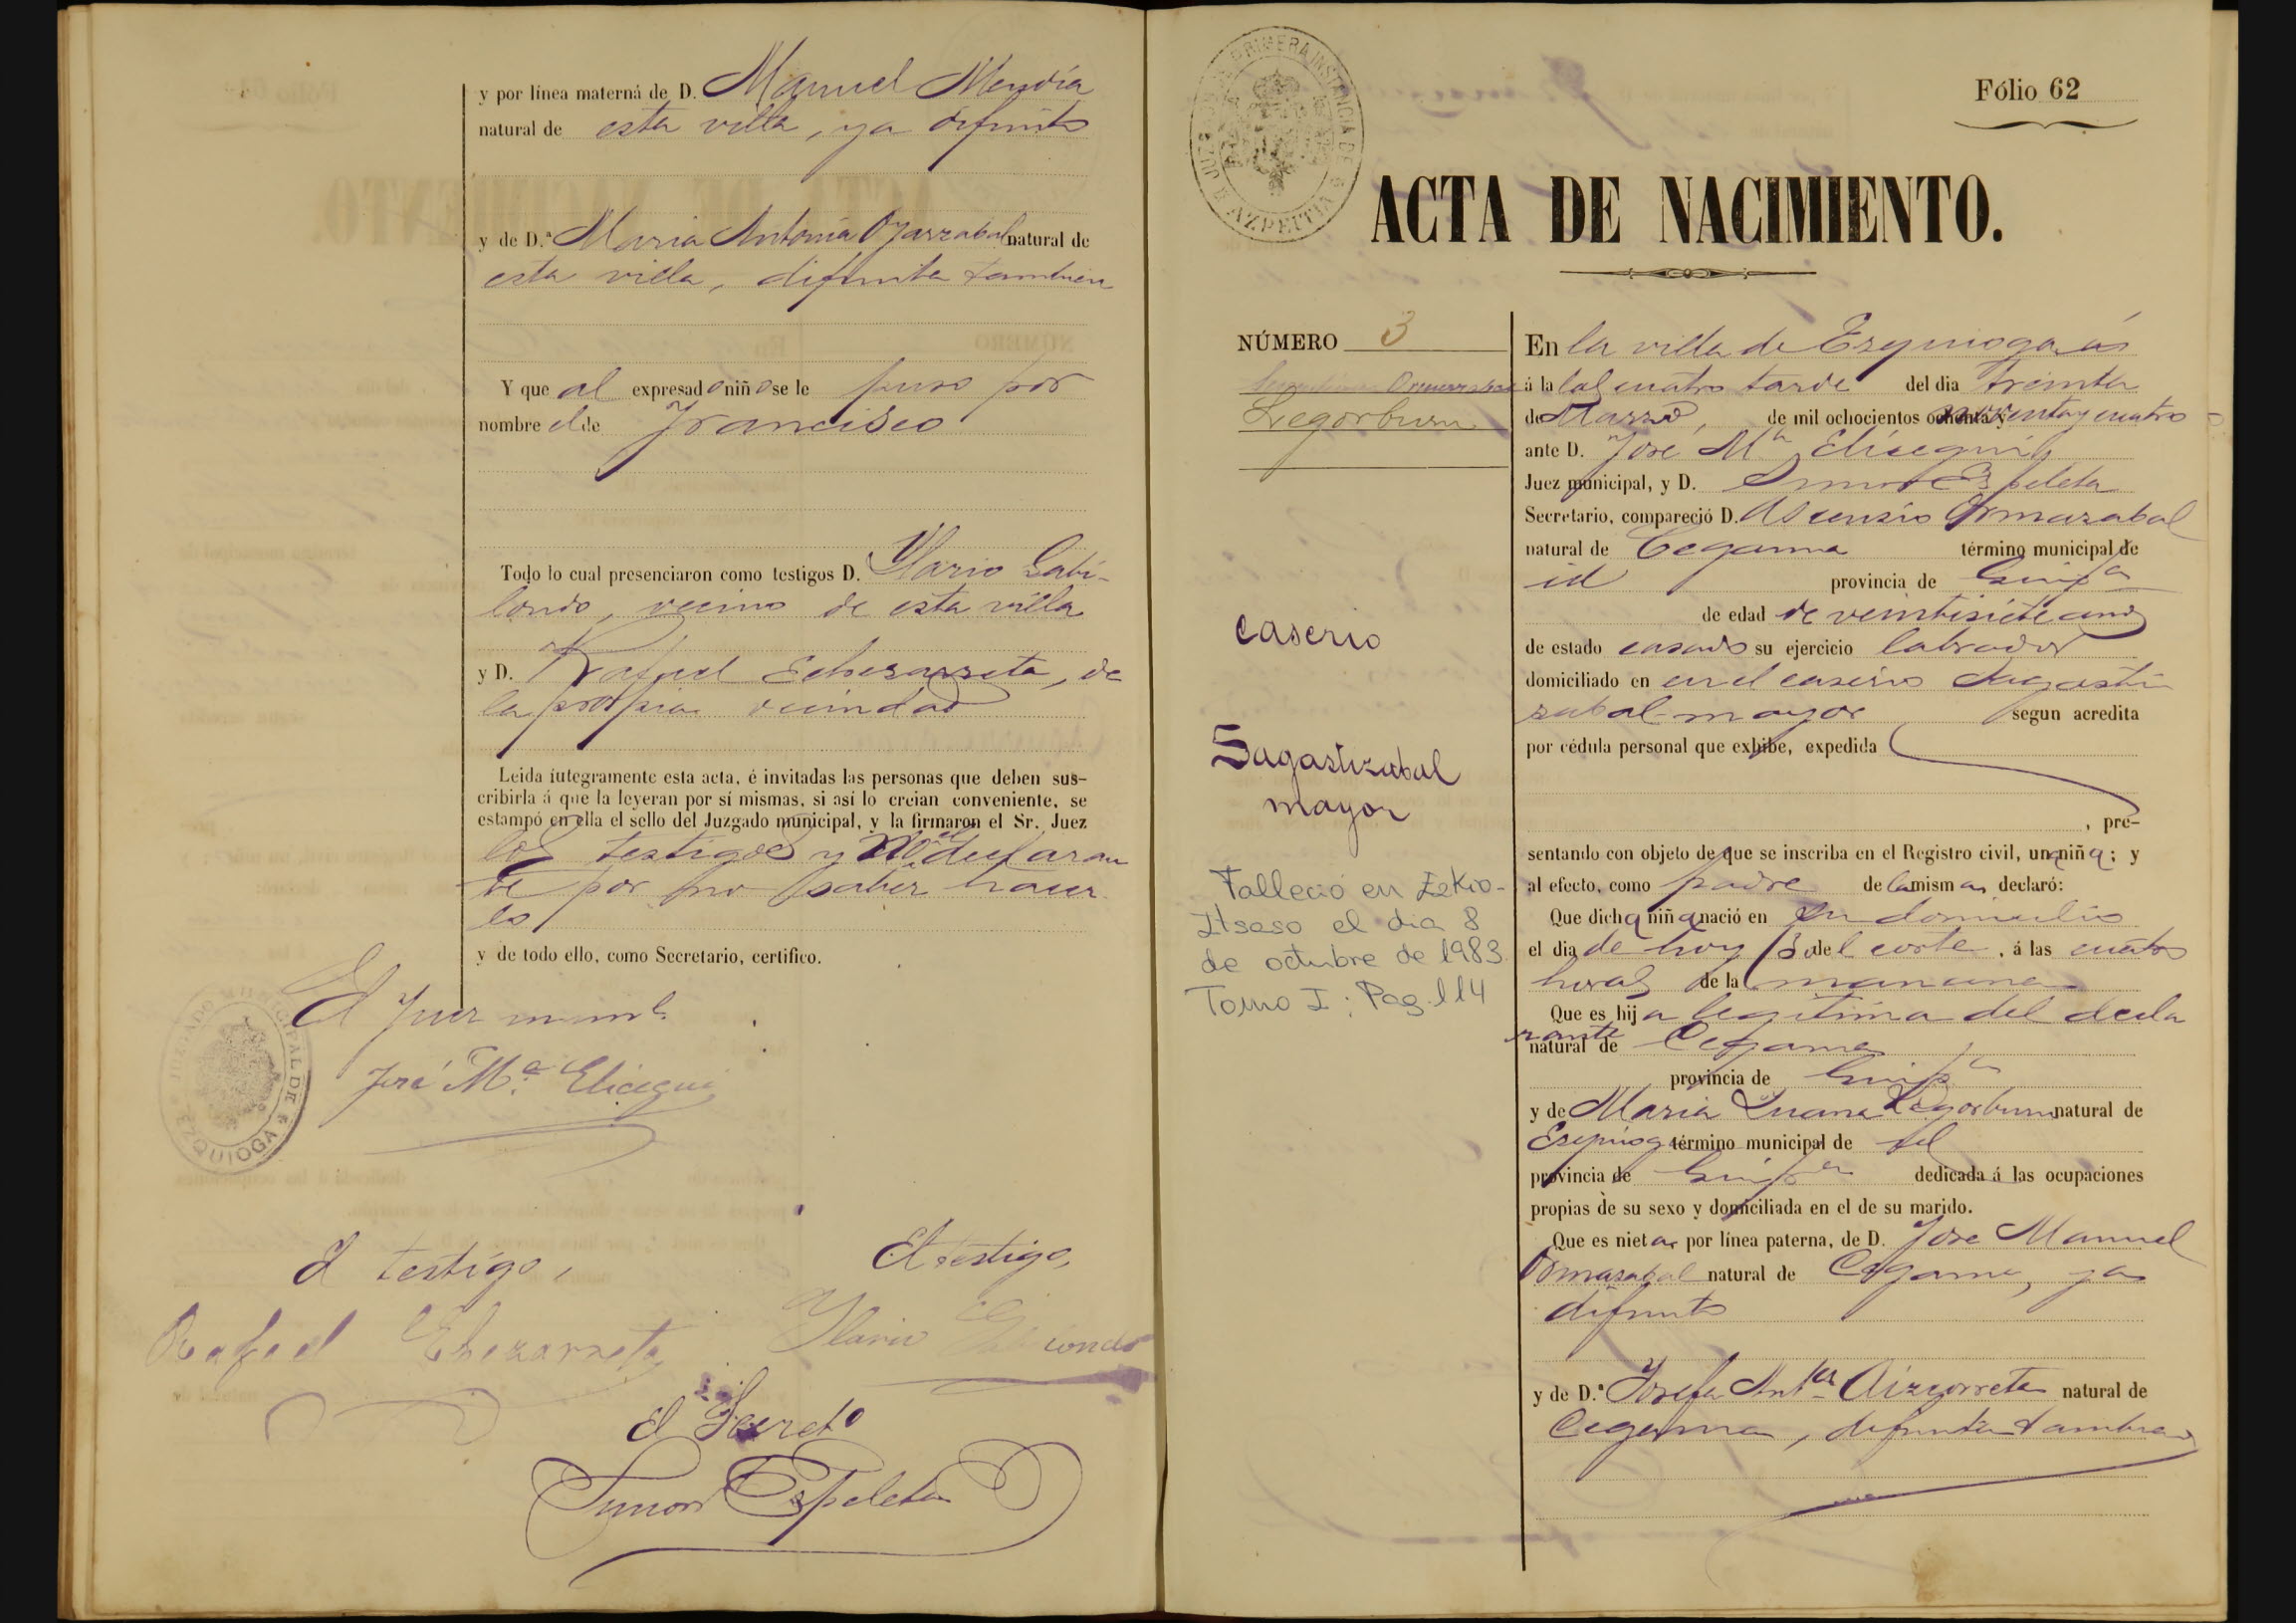 y por línea materna de D. Manuel Mendia
natural de esta villa, ya difunto
y de D.ª Maria Antonia Oyarzabal natural de
esta villa, difunta tambien
Y que al expresado niño se le puso por
nombre el de Francisco
Todo lo cual presenciaron como testigos D. Ylario Gabi-
londo, vecino de esta villa
y D. Rafael Echezarreta, de
la propia vecindad
Leida íntegramente esta acta, é invitadas las personas que deben sus-
cribirla á que la leyeran por sí mismas, si así lo creian conveniente, se
estampó en ella el sello del Juzgado municipal, y la firmaron el Sr. Juez
los testigos y no el declaran
te por no saber hacer
lo
y de todo ello, como Secretario, certifico.
El Juez munl.
José M.ª Elicegui
JUZGADO MUNICIPAL DE EZQUIOGA
El testigo,
El testigo,
Rafael Echezarreta
Ylario Gabilondo
El Secret.o
Simon Espeleta
JUZGADO DE PRIMERA INSTANCIA DE AZPEITIA
Fólio 62
ACTA DE NACIMIENTO.
NÚMERO 3
Ormazabal
Legorburu
caserio
Sagastizabal
mayor
Falleció en Ezkio-
Itsaso el dia 8
de octubre de 1983
Tomo I; Pag. 114
En la villa de Ezquioga, á
á la las cuatro tarde del dia treinta
de Marzo, de mil ochocientos ochenta y noventa y cuatro
ante D. José M.ª Elicegui
Juez municipal, y D. Simon Espeleta
Secretario, compareció D. Ascensio Ormazabal
natural de Cegama término municipal de
id provincia de Guip.a
de edad de veintisiete años
de estado casado su ejercicio labrador
domiciliado en en el caserio Sagasti
zabal mayor segun acredita
por cédula personal que exhibe, expedida
, pre-
sentando con objeto de que se inscriba en el Registro civil, una niña; y
al efecto, como padre de la misma, declaró:
Que dicha niña nació en su domicilio
el dia de hoy del corte. á las cuatro
horas de la mañana
Que es hija legitima del decla
rante
natural de Cegama
provincia de Guip.a
y de Maria Juana Legorburu natural de
Ezquioga término municipal de id
provincia de Guip.a dedicada á las ocupaciones
propias de su sexo y domiciliada en el de su marido.
Que es nieta por línea paterna, de D. Jose Manuel
Ormazabal natural de Cegama, ya
difunto
y de D.ª Josefa Ant.ia Aizcorreta natural de
Cegama, difunta tambien